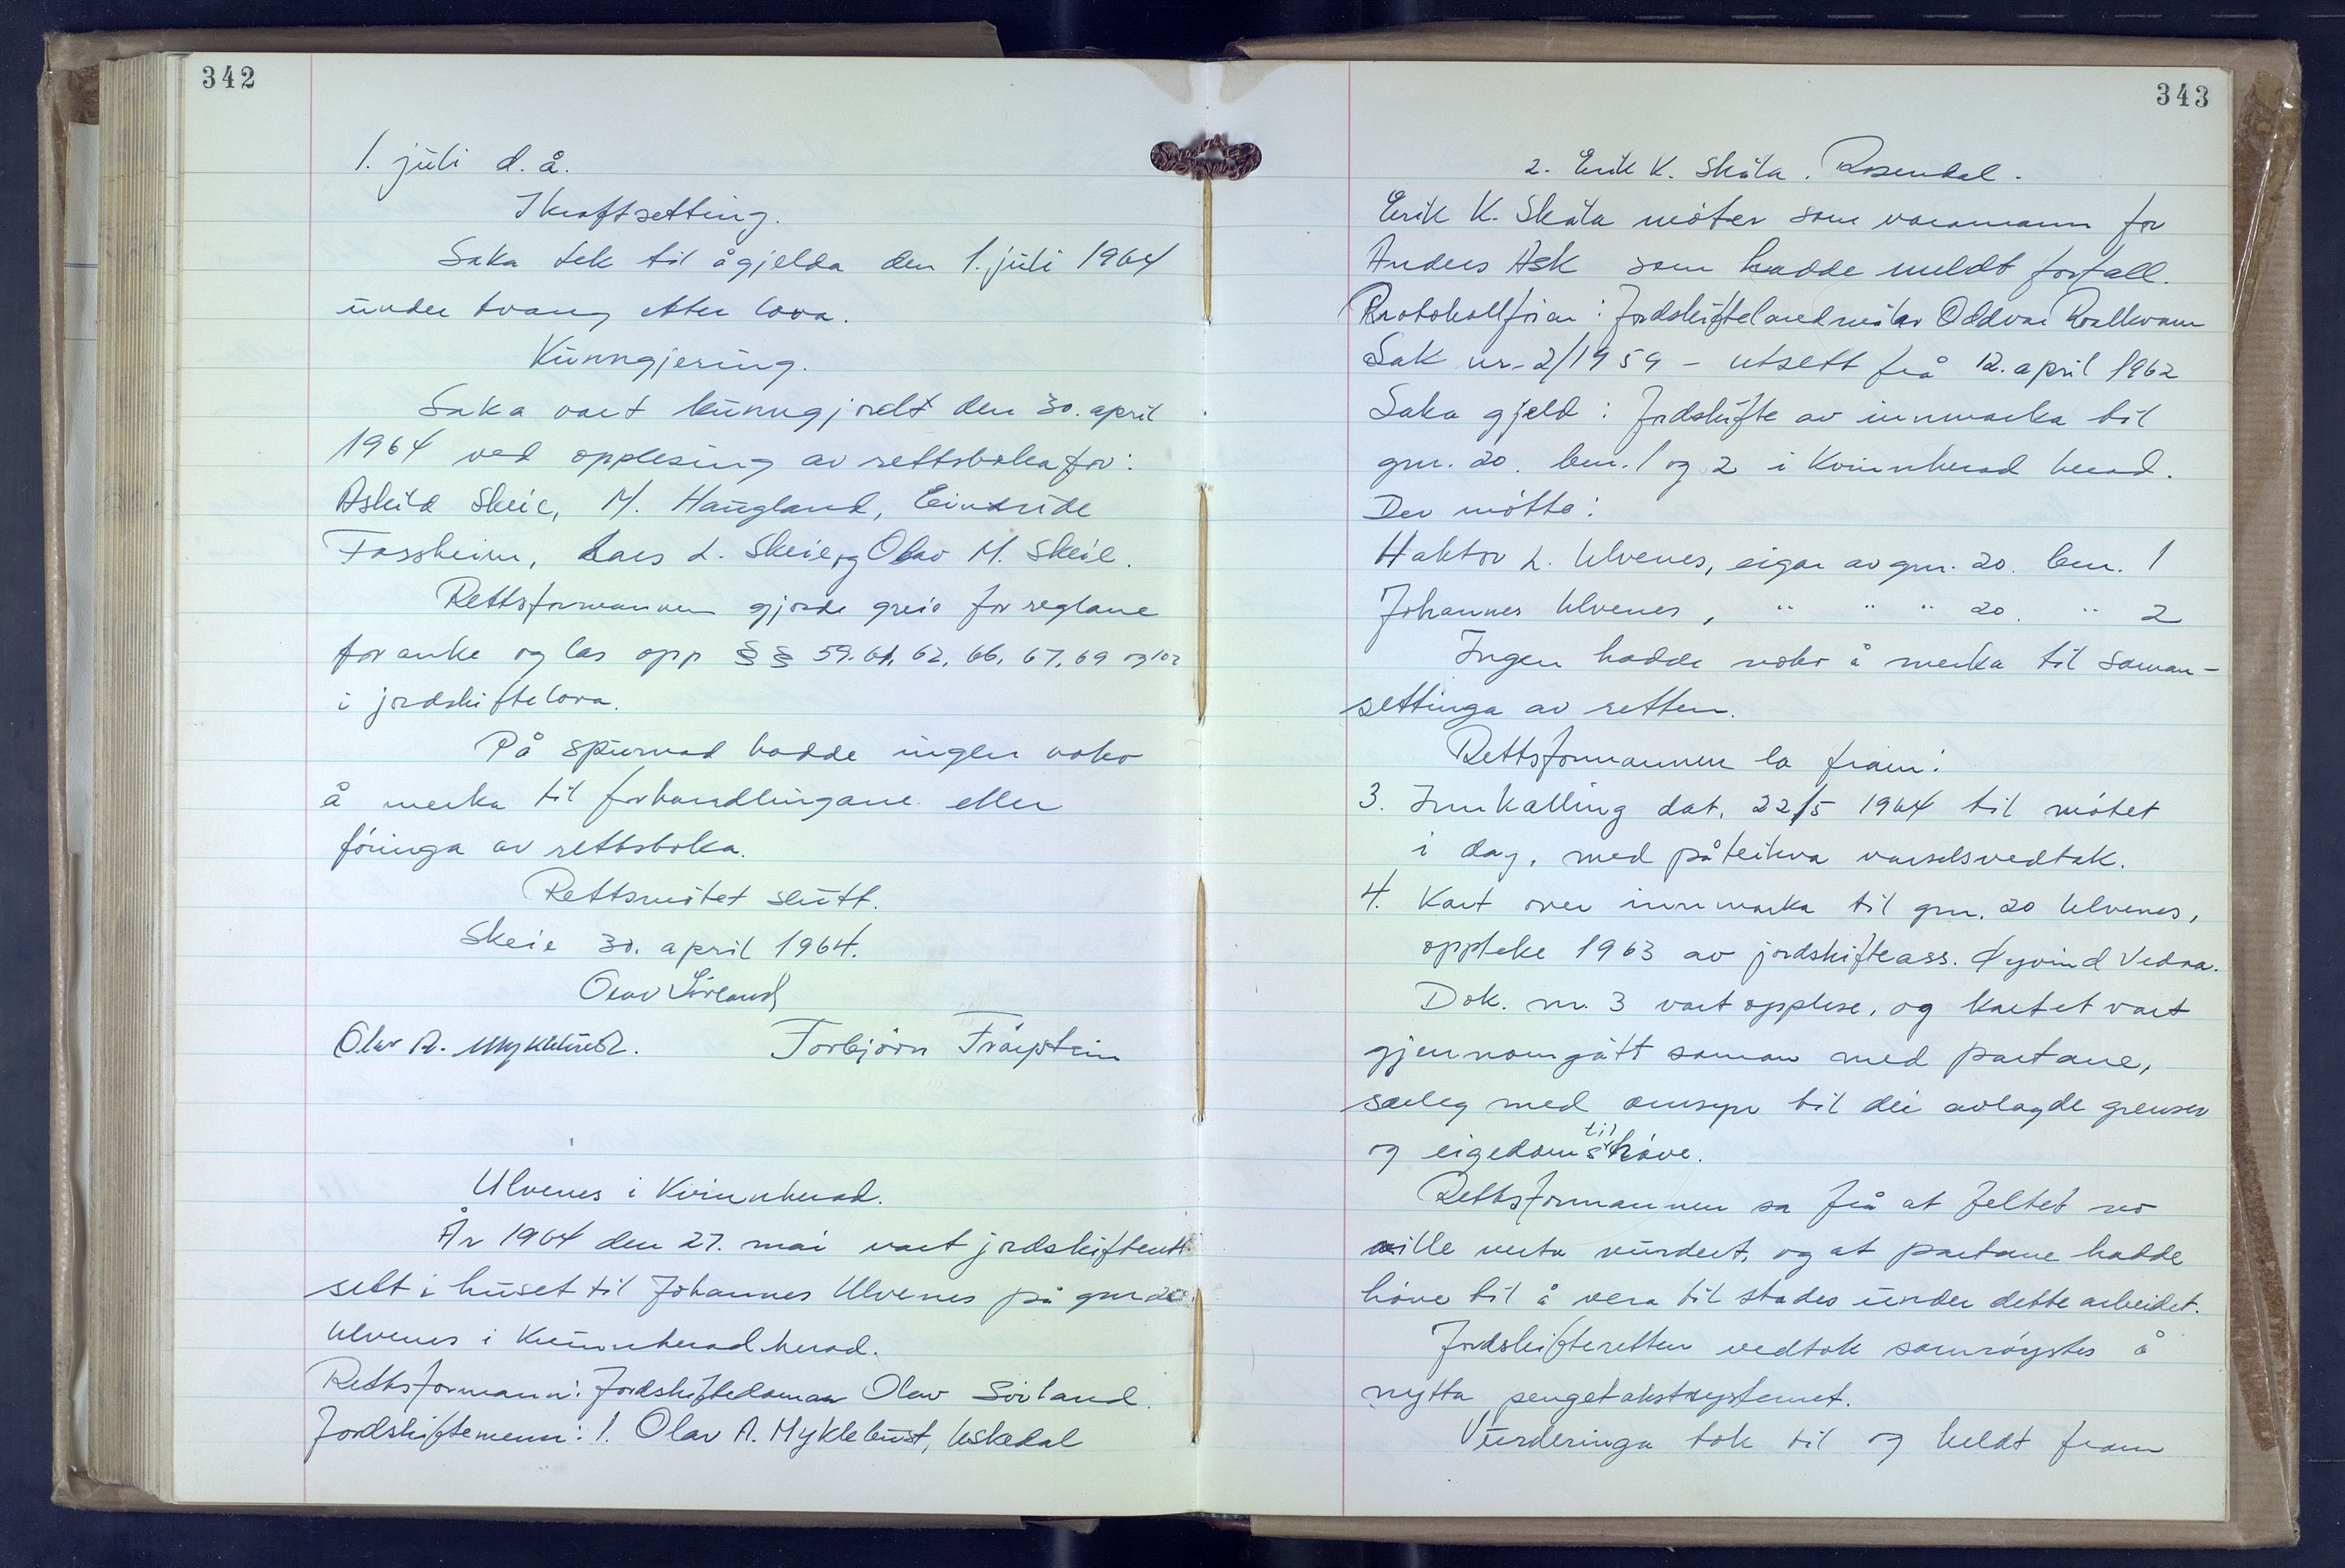 342
1. juli d.å.
Ikraftsetting.
Saka tek til å gjelda den 1. juli 1964
under tvang etter lova.
Kunngjering.
Saka vart kunngjordt den 30. april
1964 ved opplesing av rettsboka for:
Askild Skeie, M. Haugland, Eindride
Fossheim, Lars L. Skeie og Olav M. Skeie.
Rettsformannen gjorde greie for reglane
for anke og las opp §§ 59, 61, 62, 66, 67, 69 og 102
i jordskiftelova.
På spurnad hadde ingen noko
å merka til forhandlingane eller
føringa av rettsboka.
Rettsmøtet slutt.
Skeie 30. april 1964.
Olav Sørland
Olav A. Myklebust. Torbjørn Frøystein
Ulvenes i Kvinnherad.
År 1964 den 27. mai vart jordskifterett
sett i huset til Johannes Ulvenes på gnr 20.
Ulvenes i Kvinnherad herad.
Rettsformann: Jordskiftedomar Olav Sørland.
Jordskiftemenn: 1. Olav A. Myklebust, Uskedal
343
2. Erik K. Skåla. Rosendal.
Erik K. Skåla møter som varamann for
Anders Ask som hadde meldt forfall.
Protokollførar: Jordskiftelandmålar Oddvar
Sak nr. 2/1959 - utsett frå 12. april 1962
Saka gjeld: Jordskifte av innmarka til
gnr. 20. bnr. 1 og 2 i Kvinnherad herad.
Der møtte:
Haktor L. Ulvenes, eigar av gnr. 20. bnr. 1
Johannes Ulvenes, " " " 20. " 2
Ingen hadde noko å merka til saman-
settinga av retten.
Rettsformannen la fram:
3. Innkalling dat. 22/5 1964 til møtet
i dag, med påteikna varselsvedtak.
4. Kart over innmarka til gnr. 20 Ulvenes,
oppteke 1963 av jordskifteass. Øyvind Vedaa.
Dok. nr. 3 vart opplese, og kartet vart
gjennomgått saman med partane,
særleg med omsyn til dei avlagde grenser
og eigedomstilhøve.
Rettsformannen sa frå at feltet no
ville verta vurdert, og at partane hadde
høve til å vera til stades under dette arbeidet.
Jordskifteretten vedtok samrøystes å
nytta pengetakstsystemet.
Vurderinga tok til og heldt fram